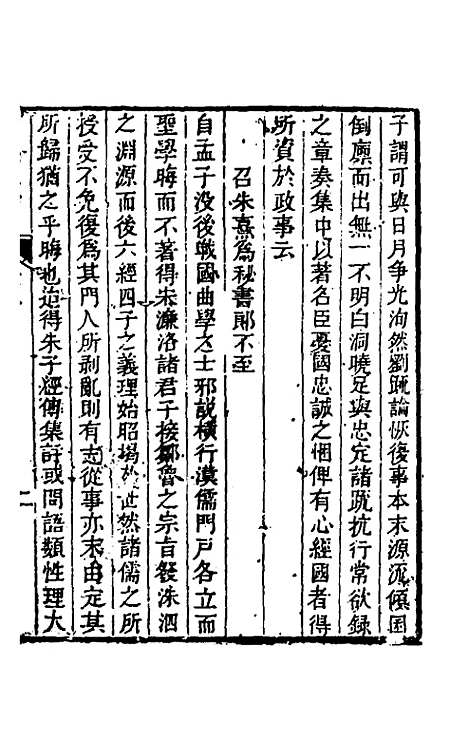 子謂可與日月争光洵然劉疏論恢復事本末源流傾囷
倒廪而出無一不明白洞曉足與忠定諸疏抗行常欲録
之章奏集中以著名臣憂國忠誠之悃俾有心經國者得
所資於政事云
召朱熹爲秘書郎不至
自孟子没後戰國曲學之士邪説横行漢儒門戸各立而
聖學晦而不著得宋濂洛諸君子接鄒魯之宗旨發洙泗
之淵源而後六經四子之義理始昭揭於世然諸儒之所
授受不免復爲其門人所剥亂則有志從事亦末由定其
所歸猶之乎晦也迨得朱子經傳集註或問語類性理大
二